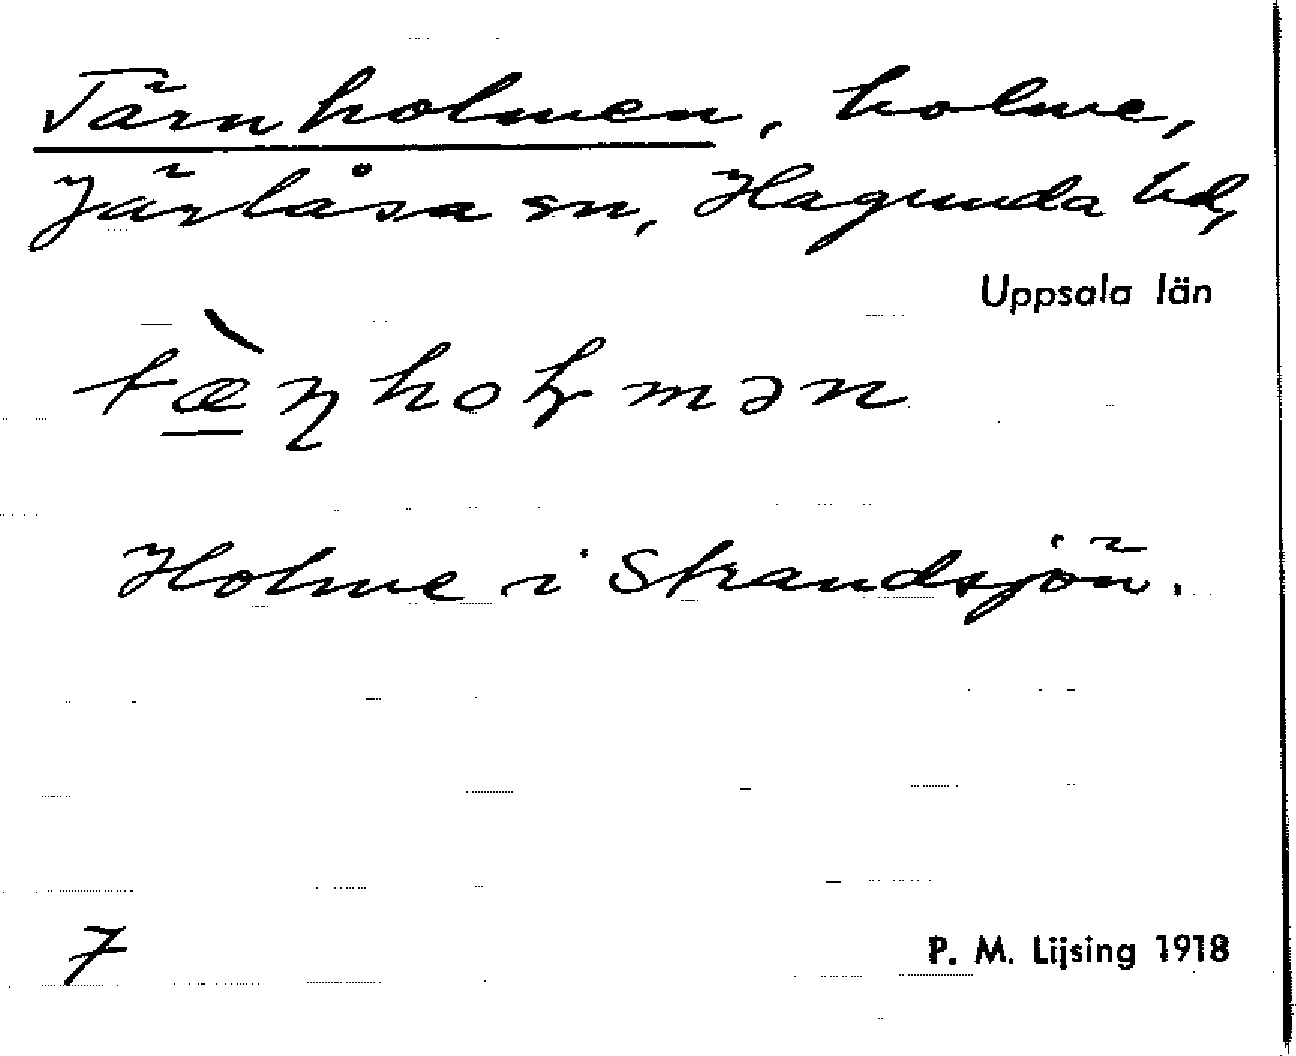 Tärnholmen, holme,
Järlåsa sn, Hagunda hd,
Uppsala län
tæ̀ɳhoɫmən
Holme i Strandsjön.
7
P. M. Lijsing 1918